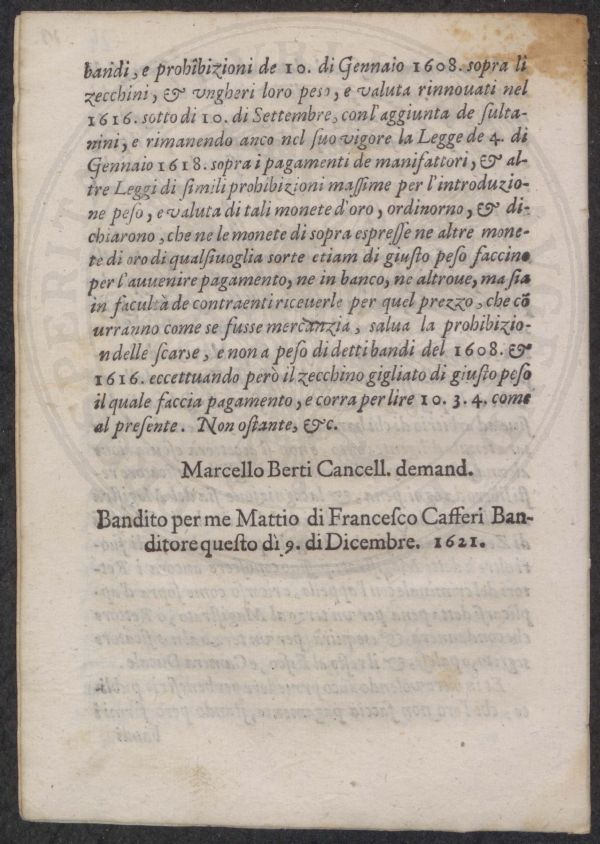 bandi, e prohibizioni de 10. di Gennaio 1608. sopra li
zecchini, & vngheri loro peso, e valuta rinnouati nel
1616. sotto di 10. di Settembre, con l'aggiunta de sulta-
nini, e rimanendo anco nel suo vigore la Legge de 4. di
Gennaio 1618. sopra i pagamenti de manifattori, & al-
tre Leggi di simili prohibizioni massime per l'introduzio-
ne peso, e valuta di tali monete d'oro, ordinorno, & di-
chiarono, che ne le monete di sopra espresse ne altre mone-
te di oro di qualsiuoglia sorte etiam di giusto peso faccino
per l'auuenire pagamento, ne in banco, ne altroue, ma sia
in facultà de contraenti riceuerle per quel prezzo, che cō
urranno come se fusse mercanzia, salua la prohibizio-
n delle scarse, e non a peso di detti bandi del 1608. &
1616. eccettuando però il zecchino gigliato di giusto peso
il quale faccia pagamento, e corra per lire 10. 3. 4. come
al presente. Non ostante, &c.
Marcello Berti Cancell. demand.
Bandito per me Mattio di Francesco Cafferi Ban-
ditore questo dì 9. di Dicembre. 1621.